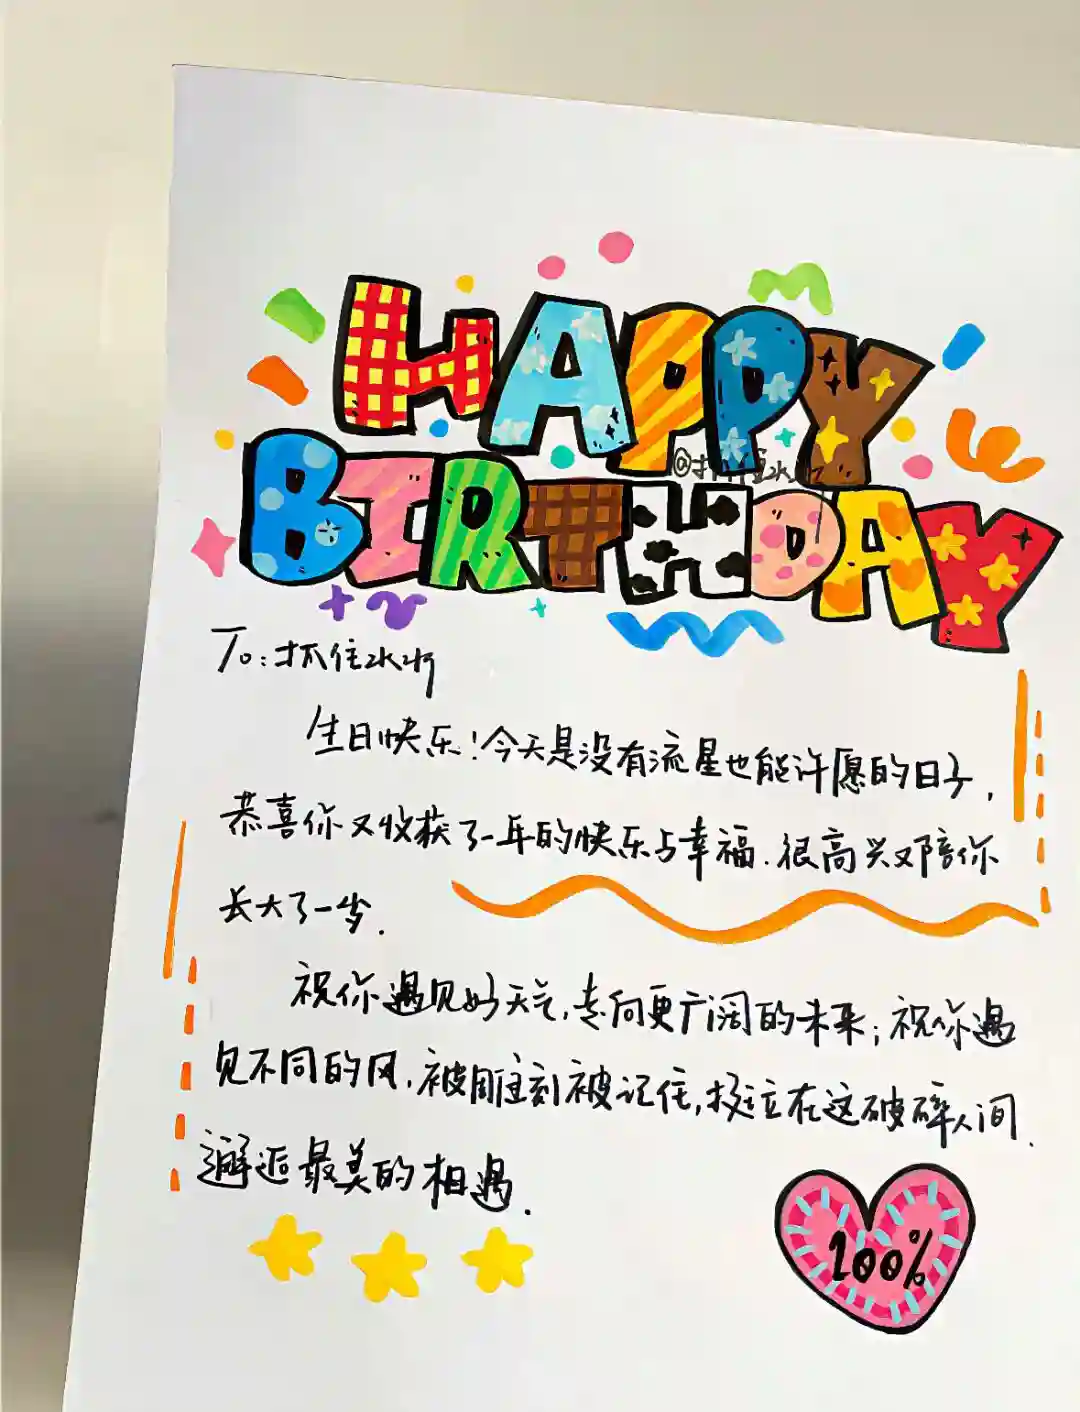 HAPPY
BIRTHDAY
To:抓住水水
生日快乐!今天是没有流星也能许愿的日子,
恭喜你又收获了一年的快乐与幸福.很高兴又陪你
长大了一岁.
祝你遇见好天气,走向更广阔的未来;祝你遇
见不同的风,被雕刻被记住,挺立在这破碎人间.
邂逅最美的相遇.
100%